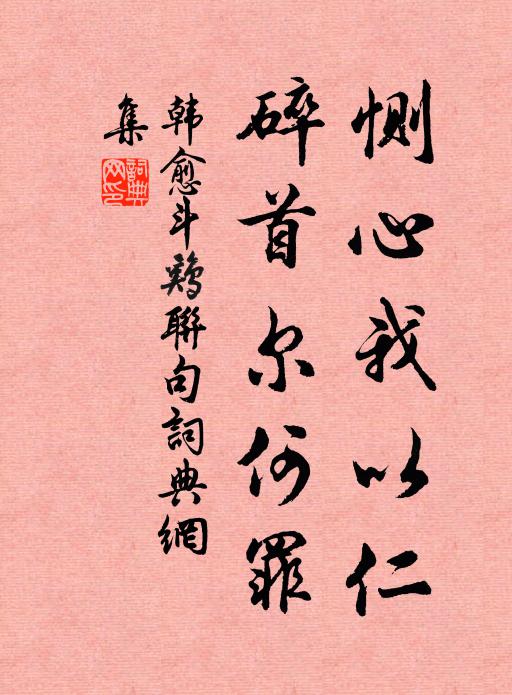 恻心我以仁
碎首尔何罪
韩愈斗鸡聯句詞典網
集
詞典網印